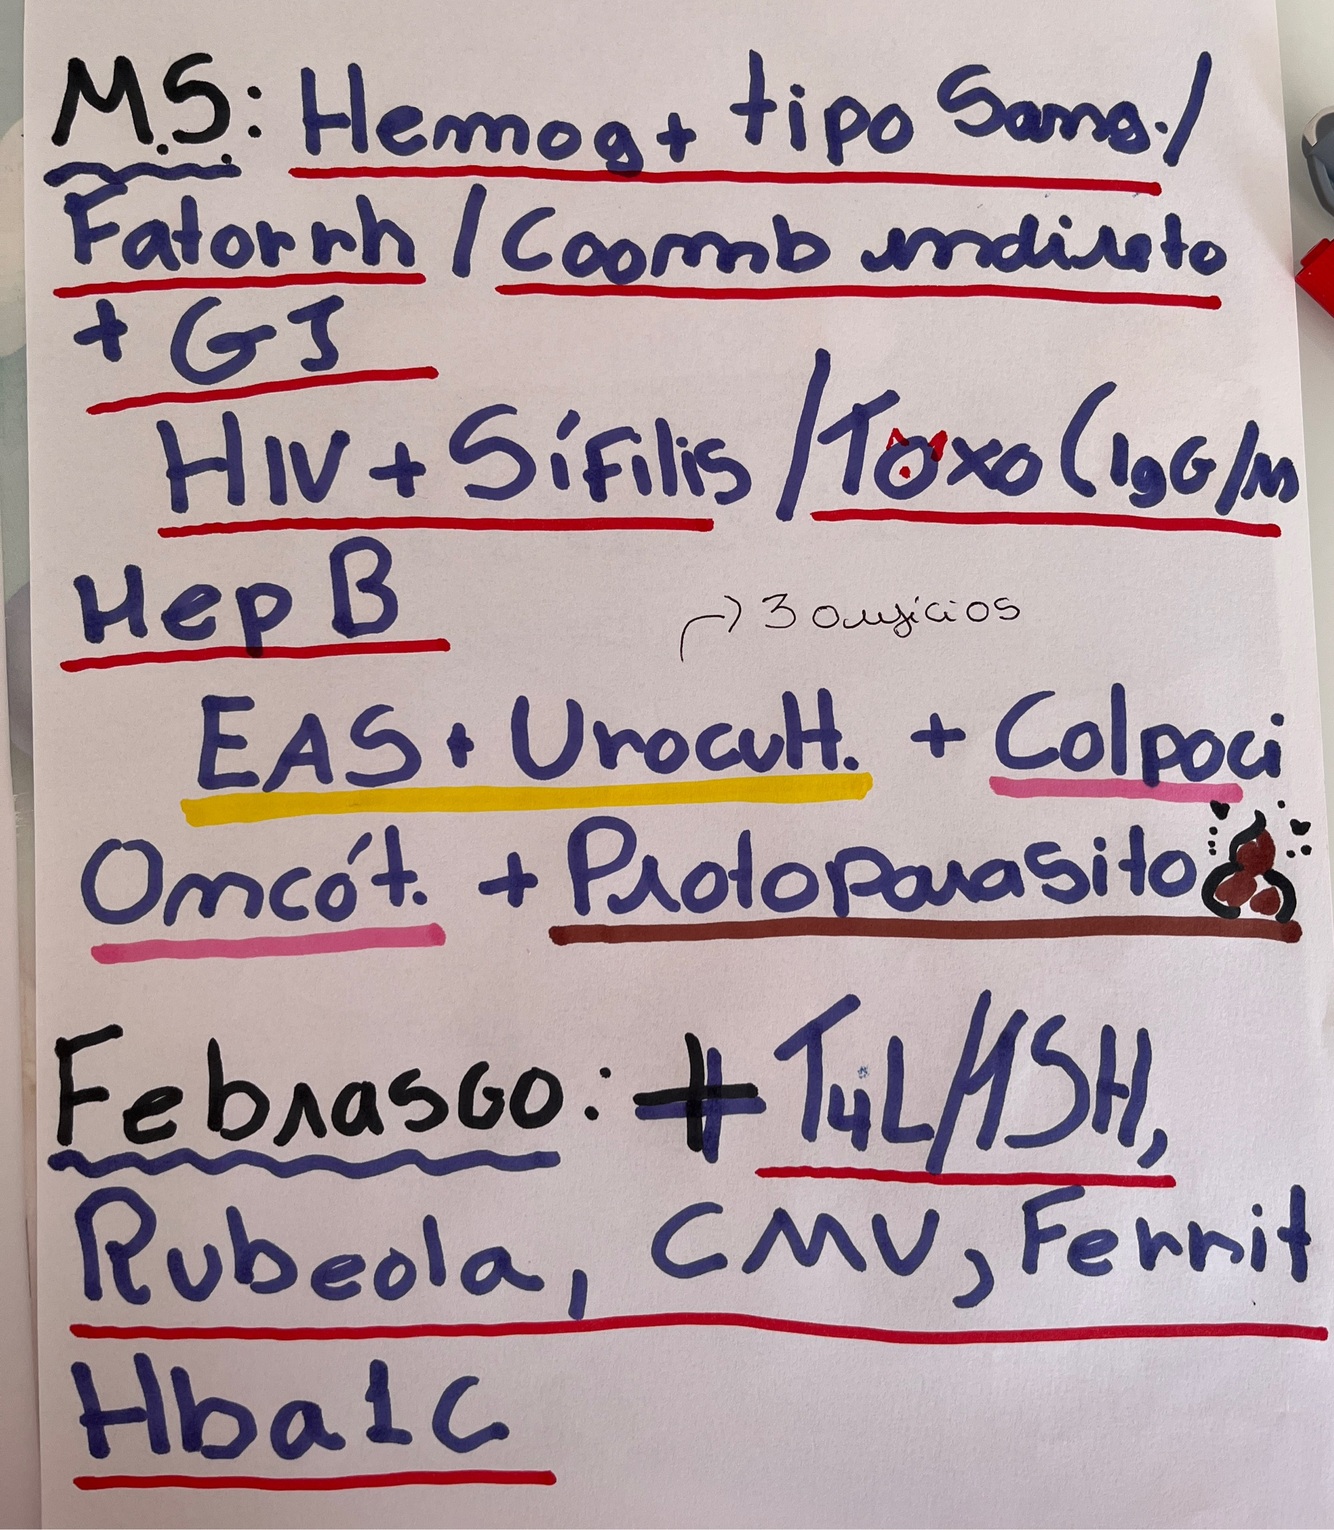 M.S.: Hemog + tipo Sang./
Fator rh / Coomb indireto
+ GJ
HIV + Sífilis / Toxo (IgG/M
Hep B
→ 3 orifícios
EAS + Urocult. + Colpoci
Oncót. + Protoparasito
Febrasgo: + T4L/TSH,
Rubeola, CMV, Ferrit
Hba1C